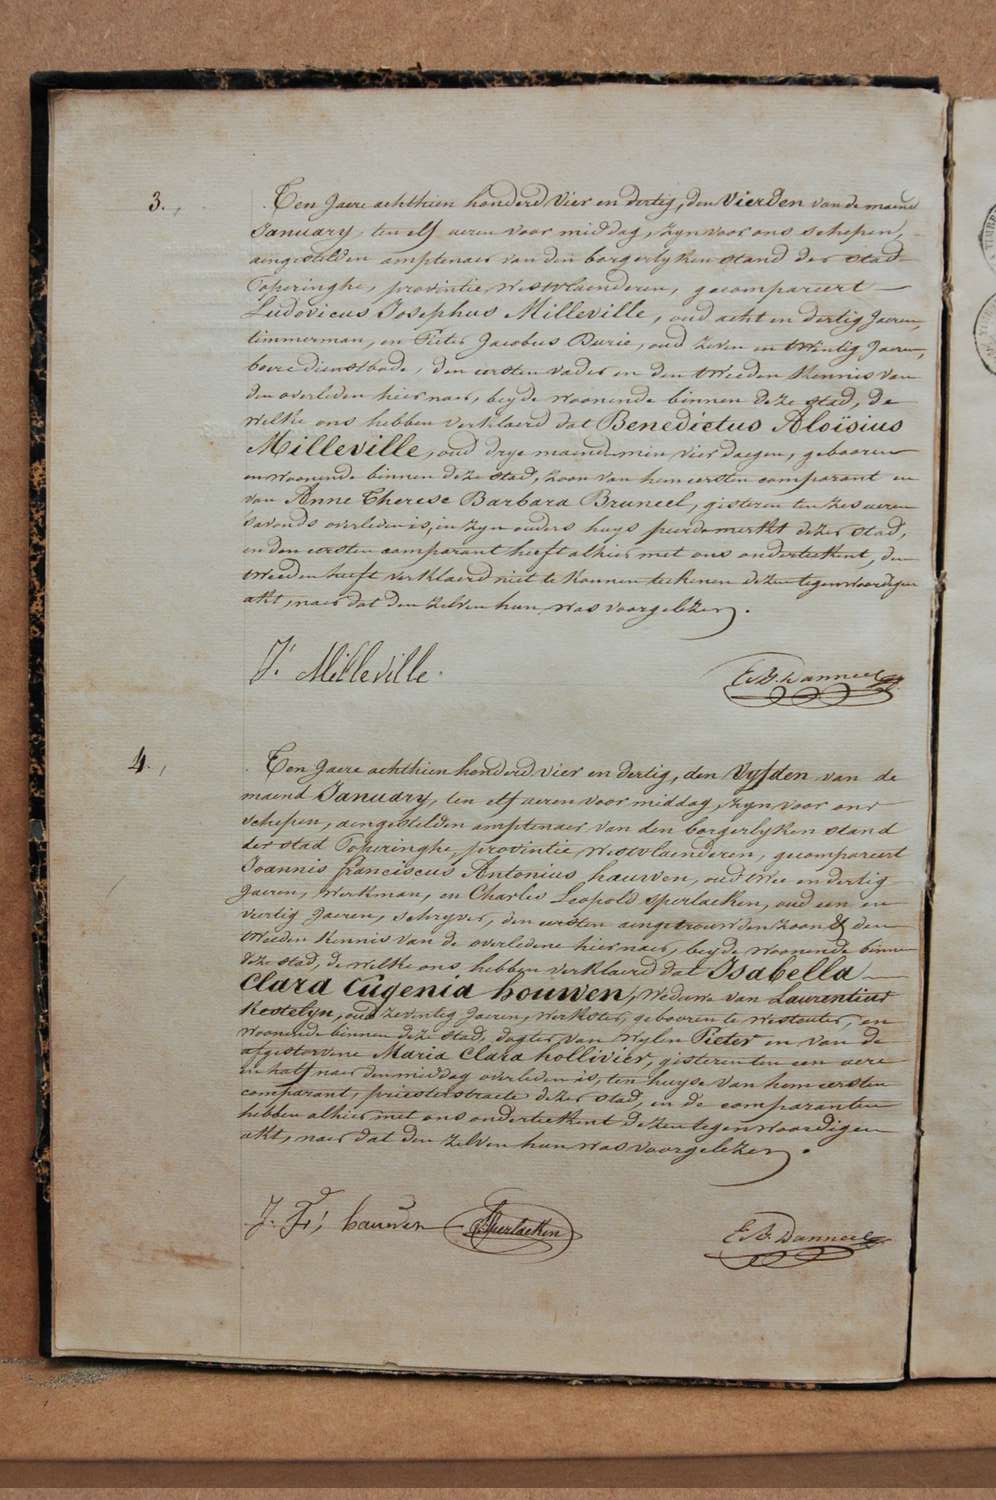 3.
Ten Jaere achthien honderd vier en dertig, den Vierden van de maend
January, ten elf ueren voor middag, zyn voor ons schepen,
aengestelden amptenaer van den borgerlyken stand der stad
Poperinghe, provintie Westvlaenderen, gecompareert
Ludovicus Josephus Milleville, oud acht en dertig Jaeren,
timmerman, en Pieter Jacobus Durie, oud zeven en twintig Jaeren,
boere dienstbode, den eersten vader en den tweeden Kennis van
den overleden hier naer, beyde woonende binnen deze stad, de
welke ons hebben verklaerd dat Benedictus Aloïsius
Milleville, oud drye maenden min vier daegen, gebooren
en woonende binnen deze stad, zoon van hem eersten comparant en
van Anne Therese Barbara Bruneel, gisteren ten zes ueren
s'avonds overleden is, in zyn ouders huys peerdemerkt dezer stad,
en den eersten comparant heeft alhier met ons onderteekent, den
tweeden heeft verklaerd niet te konnen teekenen dezen tegenwoordigen
akt, naer dat den zelven hun was voorgelezen.
J. Milleville
4.
Ten Jaere achthien honderd vier en dertig, den Vyfden van de
maend January, ten elf ueren voor middag, zyn voor ons
schepen, aengestelden amptenaer van den borgerlyken stand
der stad Poperinghe, provintie Westvlaenderen, gecompareert
Joannis franciscus Antonius hauwen, oud twee en dertig
Jaeren, Werkman, en Charles Leopold Sperlaeken, oud een en
veertig Jaeren, schryver, den eersten aengetrouwden zoon & den
tweeden Kennis van de overledene hier naer, beyde woonende binnen
deze stad, de welke ons hebben verklaerd dat Isabella
Clara Eugenia houwen, Weduwe van Laurentius
Kestelyn, oud zeventig Jaeren, Werkster, gebooren te Westouter, en
woonende binnen deze stad, dogter van Wylen Pieter en van de
afgestorvene Maria Clara hollivier, gisteren ten een uere
en half naer den middag overleden is, ten huyse van hem eersten
comparant, priesterstraete dezer stad, en de comparanten
hebben alhier met ons onderteekent dezen tegenwoordigen
akt, naer dat den zelven hun was voorgelezen.
J. F. hauwen Sperlaeken